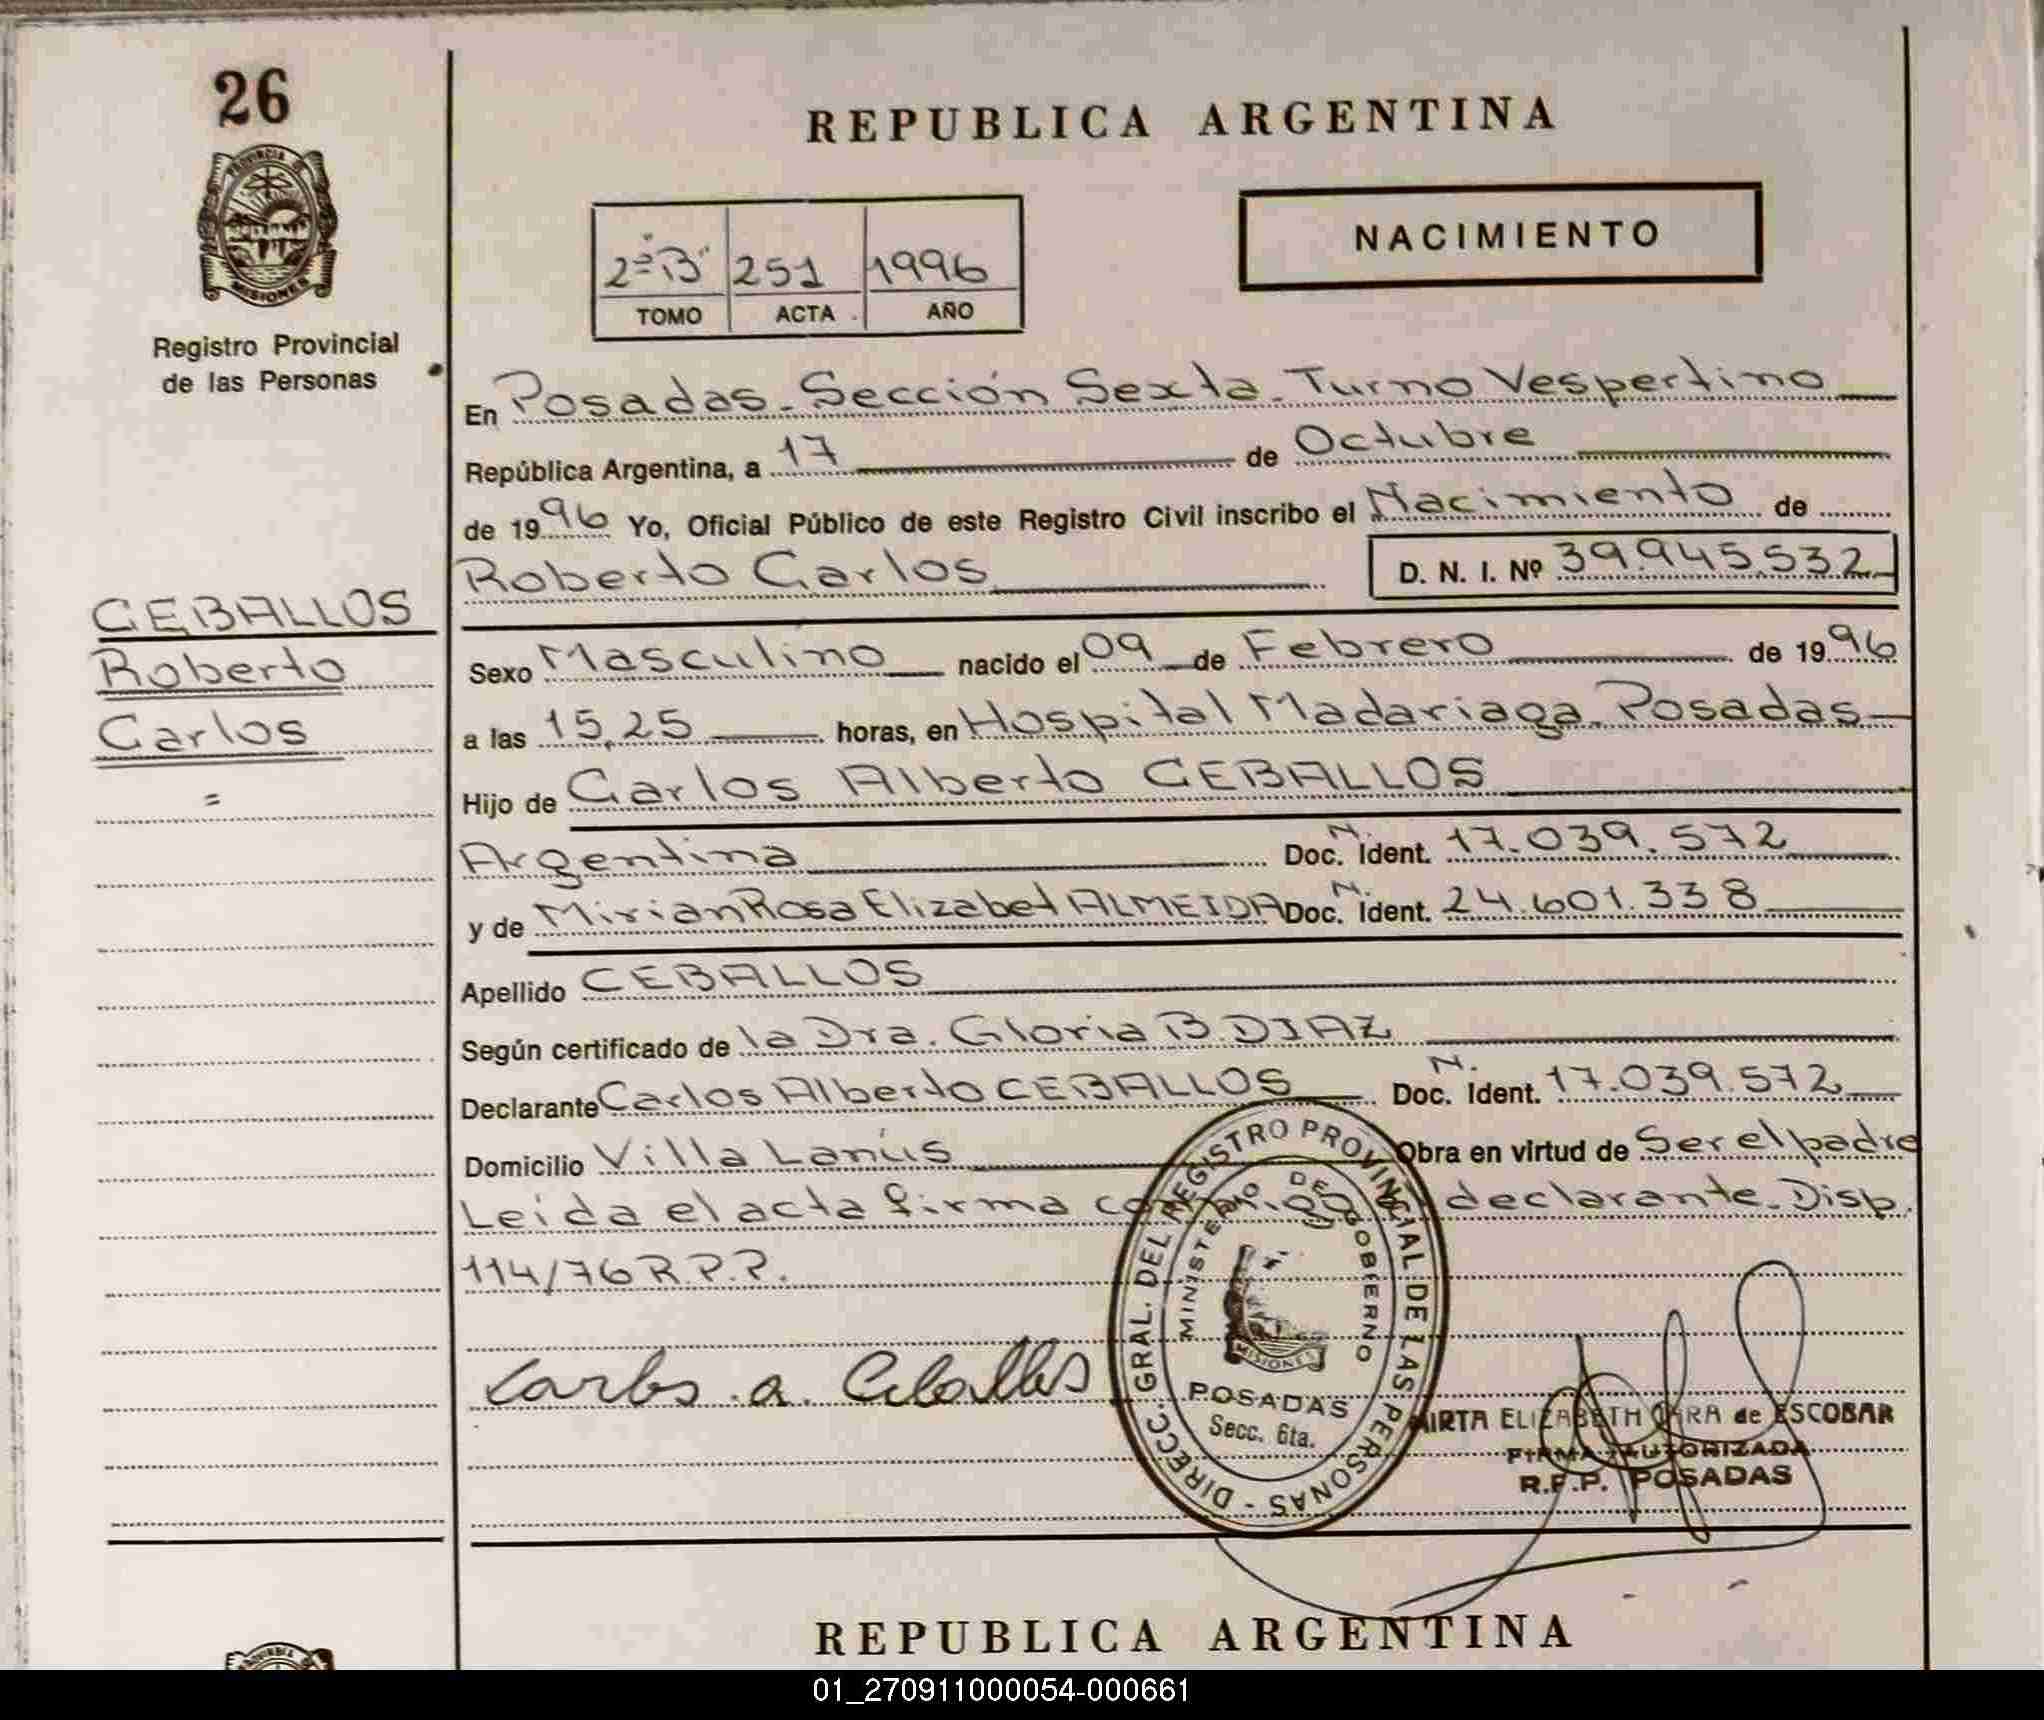 26
PROVINCIA DE
MISIONES
Registro Provincial
de las Personas
CEBALLOS
Roberto
Carlos
=
REPUBLICA ARGENTINA
2º "B" 251 1996
TOMO ACTA AÑO
NACIMIENTO
En Posadas - Sección Sexta - Turno Vespertino
República Argentina, a 17 de Octubre
de 1996 Yo, Oficial Público de este Registro Civil inscribo el Nacimiento de
Roberto Carlos D. N. I. Nº 39.945.532
Sexo Masculino nacido el 09 de Febrero de 1996
a las 15,25 horas, en Hospital Madariaga - Posadas
Hijo de Carlos Alberto CEBALLOS
Argentina Doc. N. Ident. 17.039.572
y de Mirian Rosa Elizabet ALMEIDA Doc. N. Ident. 24.601.338
Apellido CEBALLOS
Según certificado de la Dra. Gloria B. DIAZ
Declarante Carlos Alberto CEBALLOS Doc. N. Ident. 17.039.572
Domicilio Villa Lanús Obra en virtud de Ser el padre
Leida el acta firma conmigo el declarante - Disp.
114/76 R.P.P.
Carlos a. Ceballos
DIRECC. GRAL. DEL REGISTRO PROVINCIAL DE LAS PERSONAS -
MINISTERIO DE GOBIERNO
MISIONES
POSADAS
Secc. 6ta.
MIRTA ELIZABETH JARA de ESCOBAR
FIRMA AUTORIZADA
R.P.P. POSADAS
REPUBLICA ARGENTINA
01_270911000054-000661